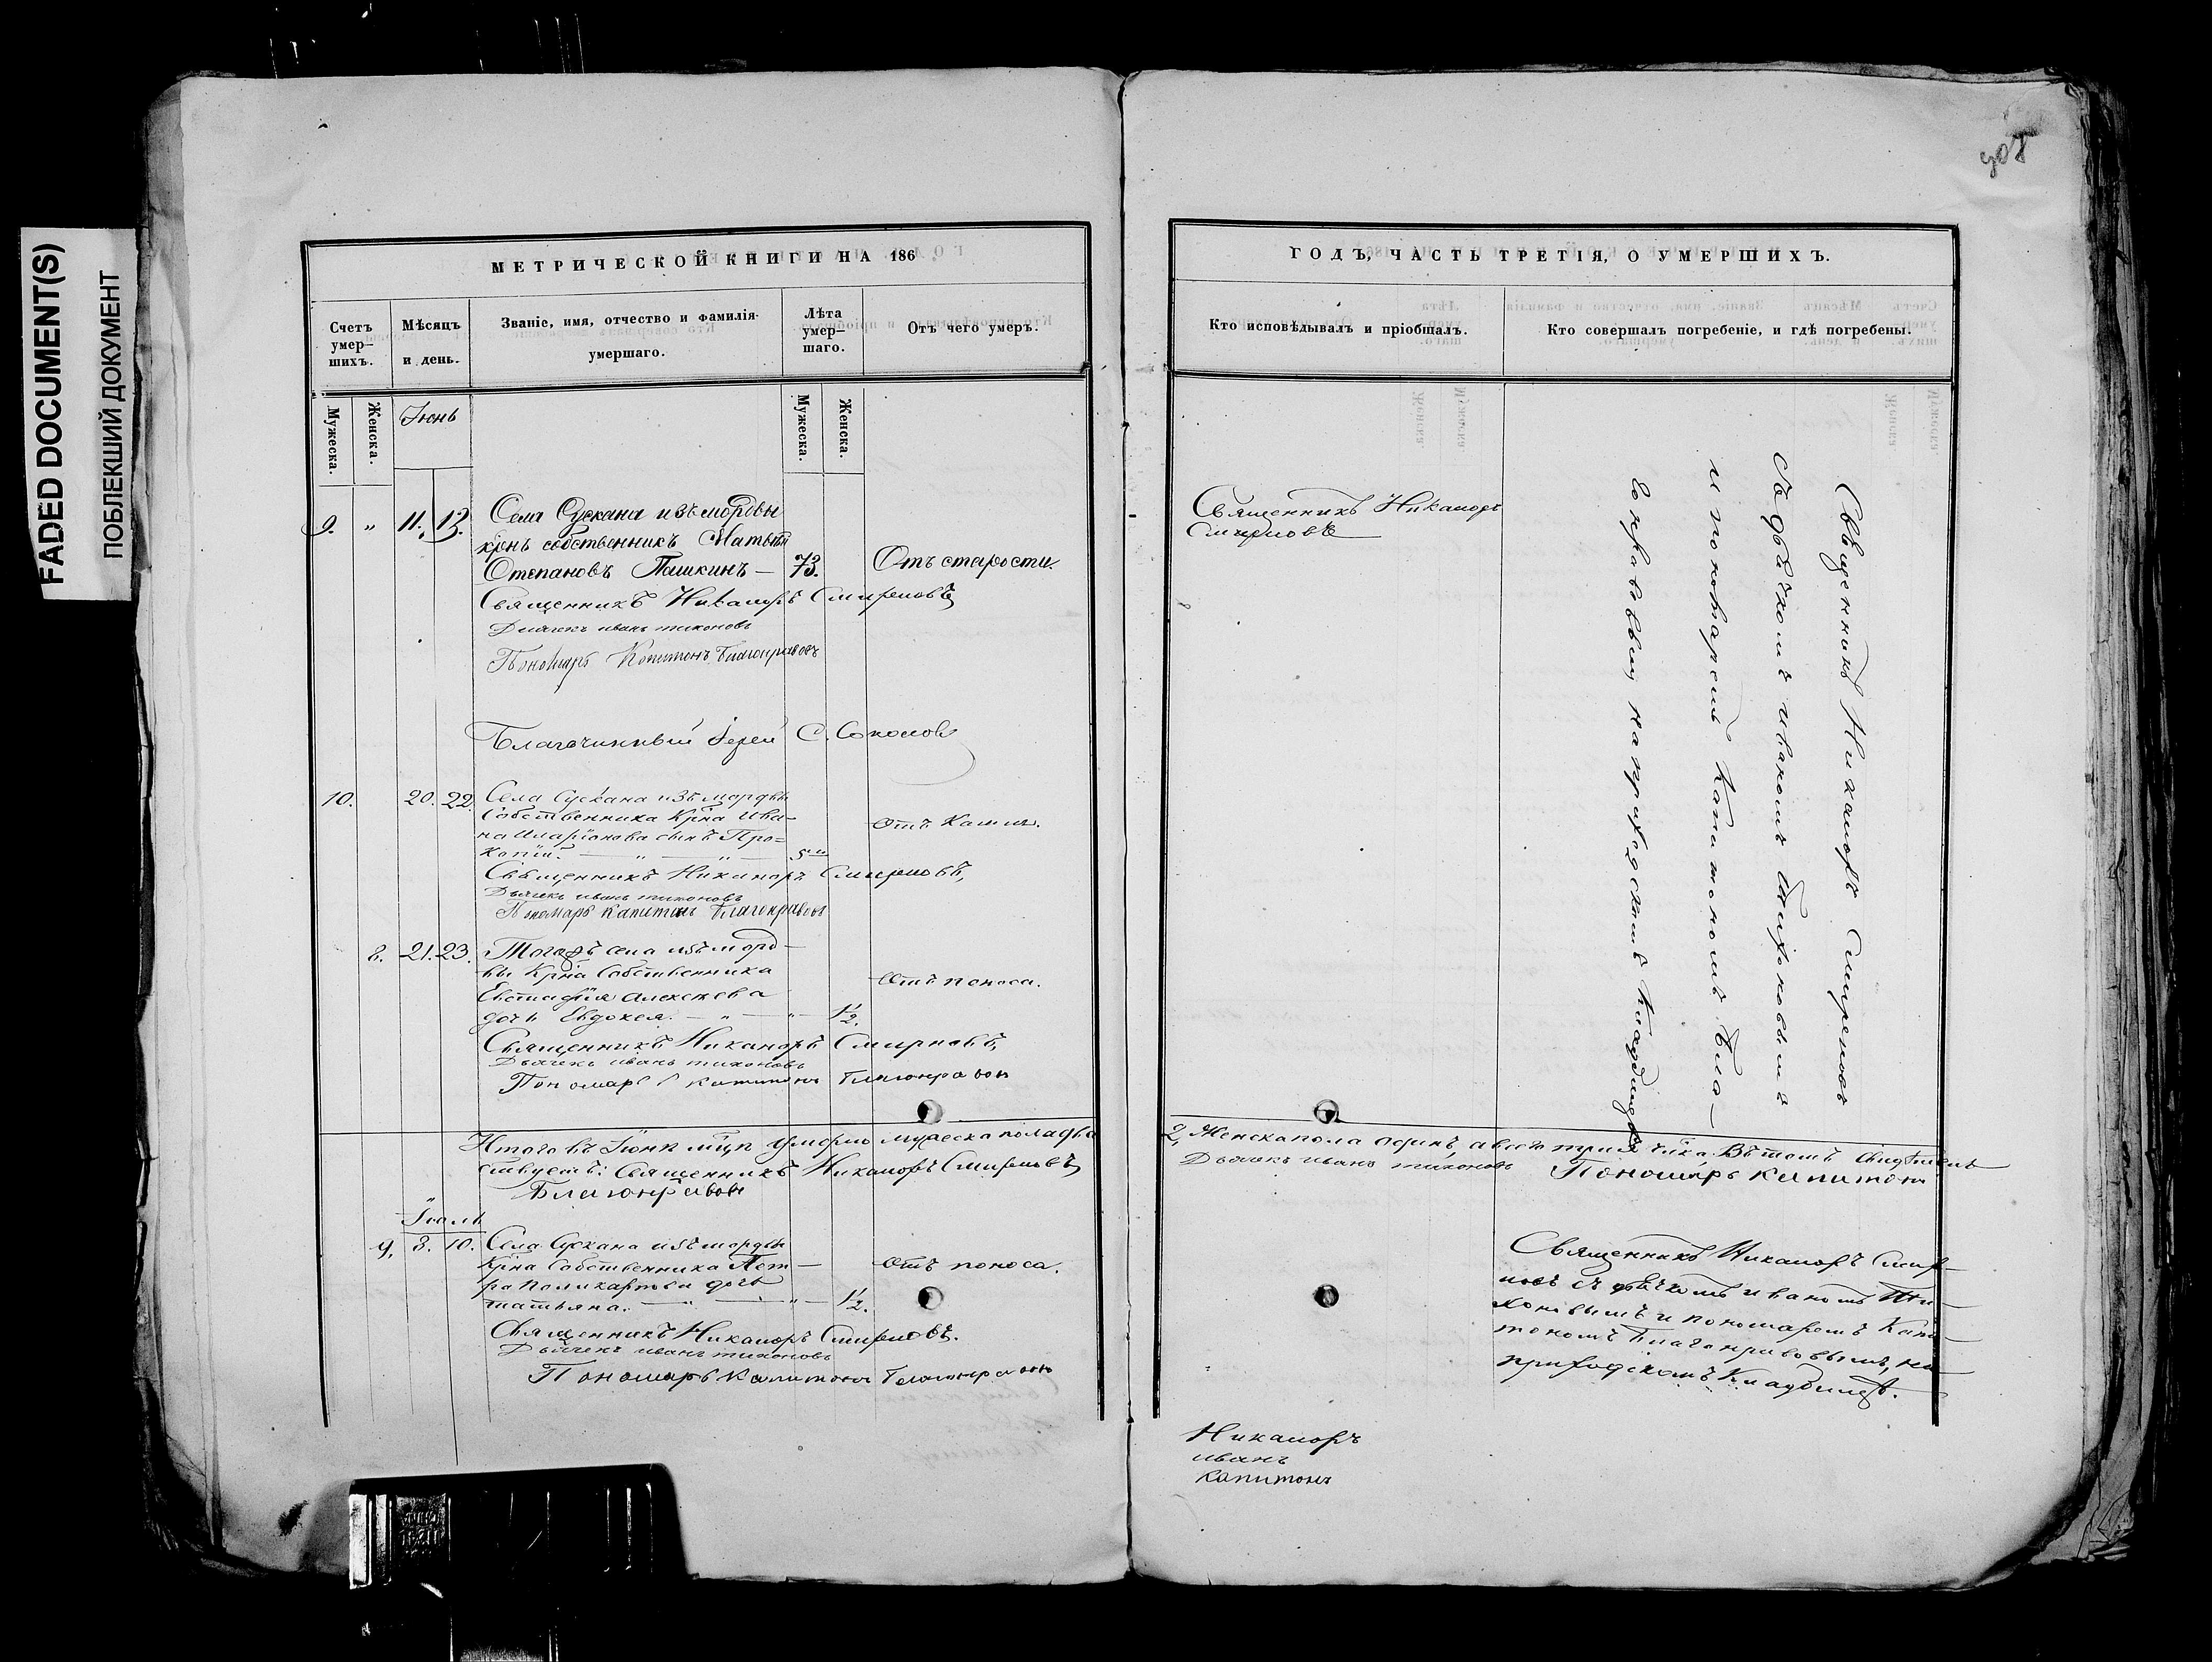 FADED DOCUMENT(S)
ПОБЛЕКШИЙ ДОКУМЕНТ
МЕТРИЧЕСКОЙ КНИГИ НА 186
Счетъ умер-шихъ.
Мѣсяцъ и день.
Званіе, имя, отчество и фамилія умершаго.
Лѣта умер-шаго.
Отъ чего умеръ.
Мужеска.
Женска.
Іюнь
Мужеска.
Женска.
9. " 11. 13. Села Сускана изъ мордвы
крнъ собственникъ Матвѣй
Степановъ Пашкинъ — 73. Отъ старости.
Священникъ Никаноръ Смирновъ
Дьячекъ иванъ тихоновъ
Пономарь Капитонъ Благонравовъ
Благочинный Іерей С. Соколовъ
10. 20. 22. Села Сускана изъ мордвы
Собственника Крна Ива-
на Иларіонова сынъ Про-
копій. — " — " — 5 Отъ Кашля.
Священникъ Никаноръ Смирновъ,
Дьячекъ иванъ тихоновъ
Пономарь Капитонъ Благонравовъ
8. 21. 23. Тогожъ села изъ морд-
вы Крна Собственника
Евстафія Алексѣева
дочь Евдокея. — " — " — 1 1/2. Отъ поноса.
Священникъ Никаноръ Смирновъ,
Дьячекъ иванъ тихоновъ
Пономарь Капитонъ Благонравовъ
Итого въ Іюнѣ мцѣ умерло мужеска пола два
ствуетъ: Священникъ Никаноръ Смирновъ
Благонравовъ
Іюль
9. 8. 10. Села Сускана изъ мордвы
Крна Собственника Пет-
ра Поликарпова дочь
татьяна. — " — " — 1 1/2. Отъ поноса.
Священникъ Никаноръ Смирновъ.
Дьячекъ иванъ тихоновъ
Пономарь Капитонъ Благонравовъ
308
ГОДЪ, ЧАСТЬ ТРЕТІЯ, О УМЕРШИХЪ.
Кто исповѣдывалъ и пріобщалъ.
Кто совершалъ погребеніе, и гдѣ погребены.
Священникъ Никаноръ
Смирновъ
Священникъ Никаноръ Смирновъ
съ дьячкомъ иваномъ Тихоновымъ
и пономаремъ Капитономъ Бла-
гонравовымъ на приходскомъ Кладбищѣ
2, Женска пола одинъ, а всего три чка. Въ томъ свидѣтель
Дьячекъ иванъ тихоновъ Пономарь Капитонъ
Священникъ Никаноръ Смир-
новъ съ дьячкомъ иваномъ Ти-
хоновымъ и пономаремъ Капи-
тономъ Благонравовымъ, на
приходскомъ Кладбищѣ.
Никаноръ
иванъ
Капитонъ